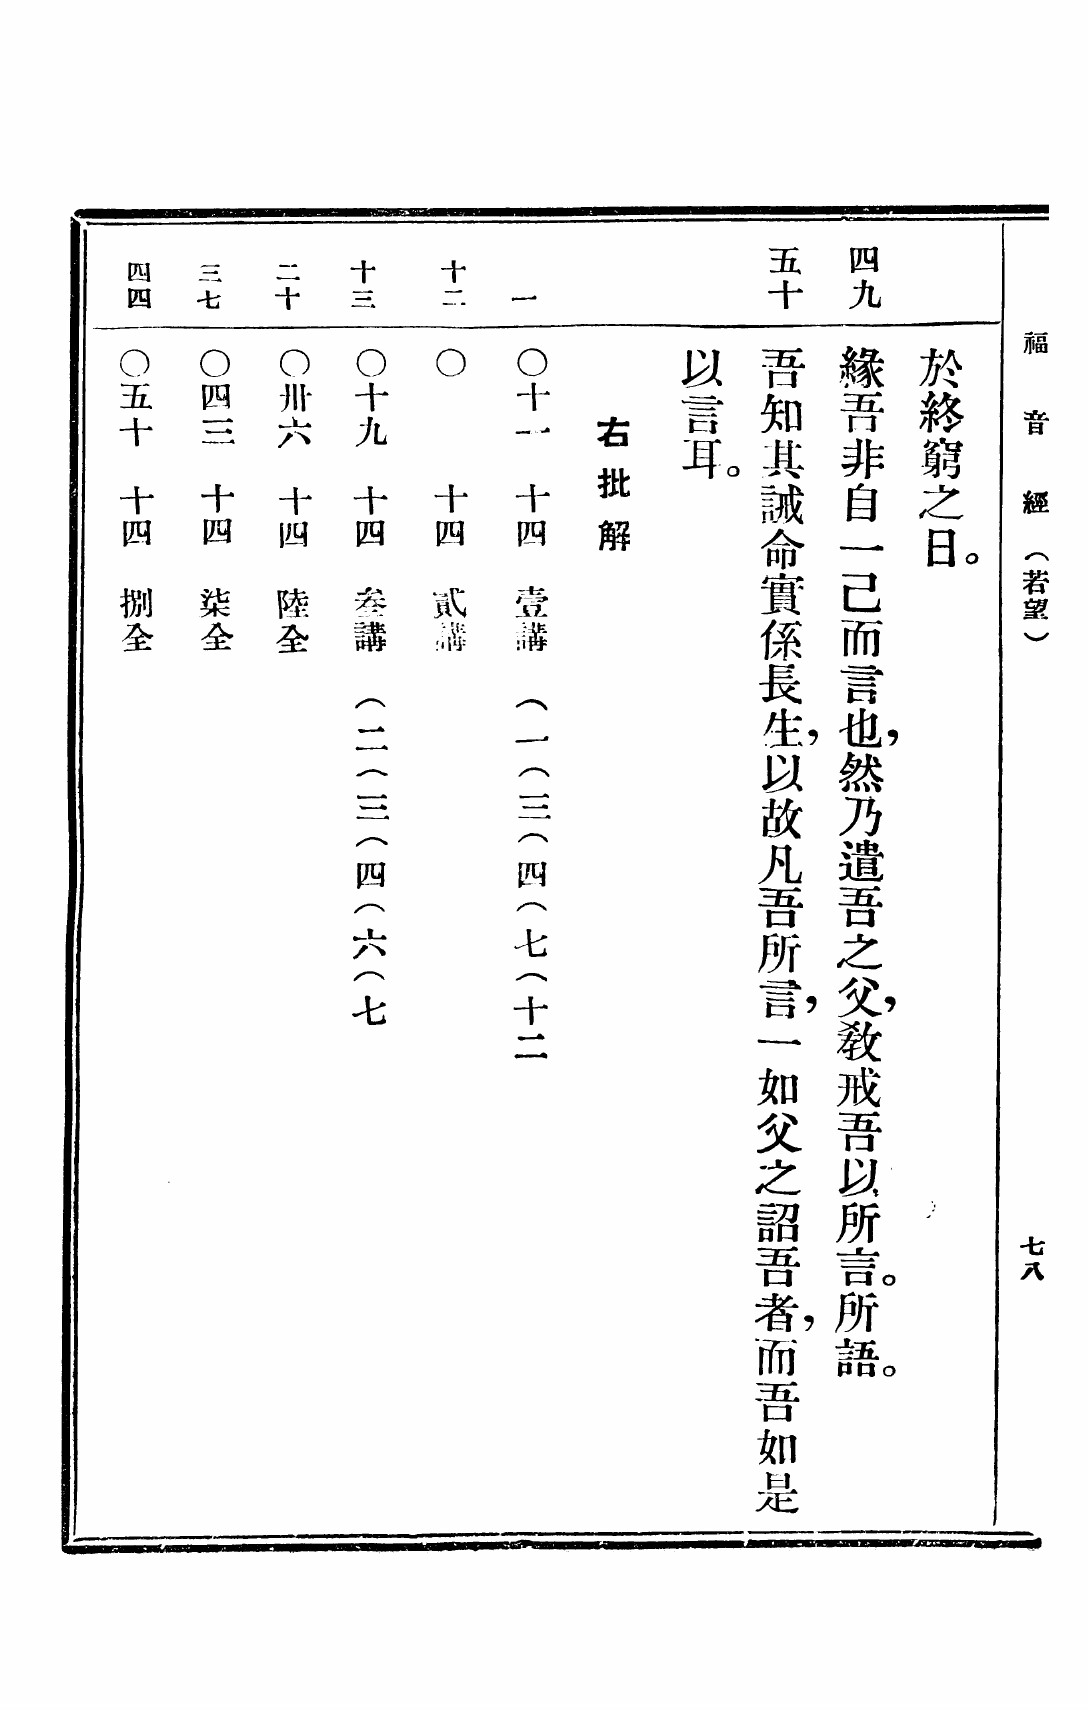 福音經（若望）
七八
於終窮之日。
四九
緣吾非自一己而言也，然乃遣吾之父，教戒吾以所言。所語。
五十
吾知其誡命實係長生，以故凡吾所言，一如父之詔吾者，而吾如是
以言耳。
右批解
一
〇十一 十四 壹講 （一（三（四（七（十二
十二
〇 十四 貳講
十三
〇十九 十四 叁講 （二（三（四（六（七
二十
〇卅六 十四 陸仝
三七
〇四三 十四 柒仝
四四
〇五十 十四 捌仝